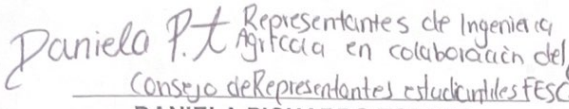 Daniela P.t
Representantes de Ingenieria
Agricola en colaboración del
Consejo de Representantes estudiantiles FESC